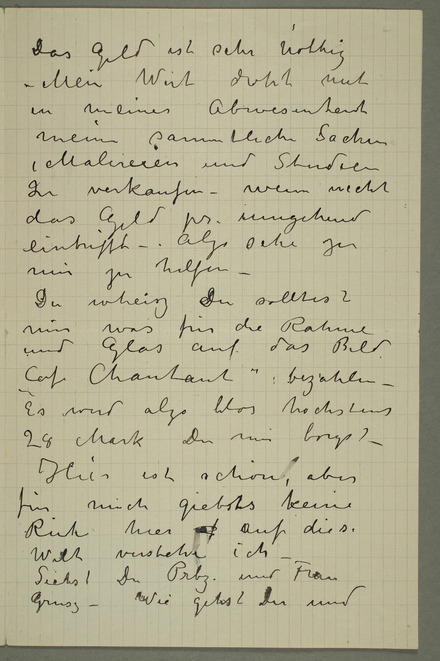 Das Geld ist sehr nöthig
– Mein Wirt droht mit
in meiner Abwesenheit
meine sammtliche Sachen
(Malereien und Studien
zu verkaufen – wenn nicht
das Geld pr. umgehend
eintrifft –. Also sehe zu
mir zu helfen –
Du wheisz Du solltes?
mir was für die Rahme
und Glas auf das Bild
Caf Chantant": bezahlen –
Es wird also blos höchstens
28 Mark Du mir borgst –
Hier ist schön, aber
für mich giebts keine
Ruh hier auf dies.
Welt verstehe ich –
Siehst Du Przb. und Frau
Grusz – Wie gehst Du und